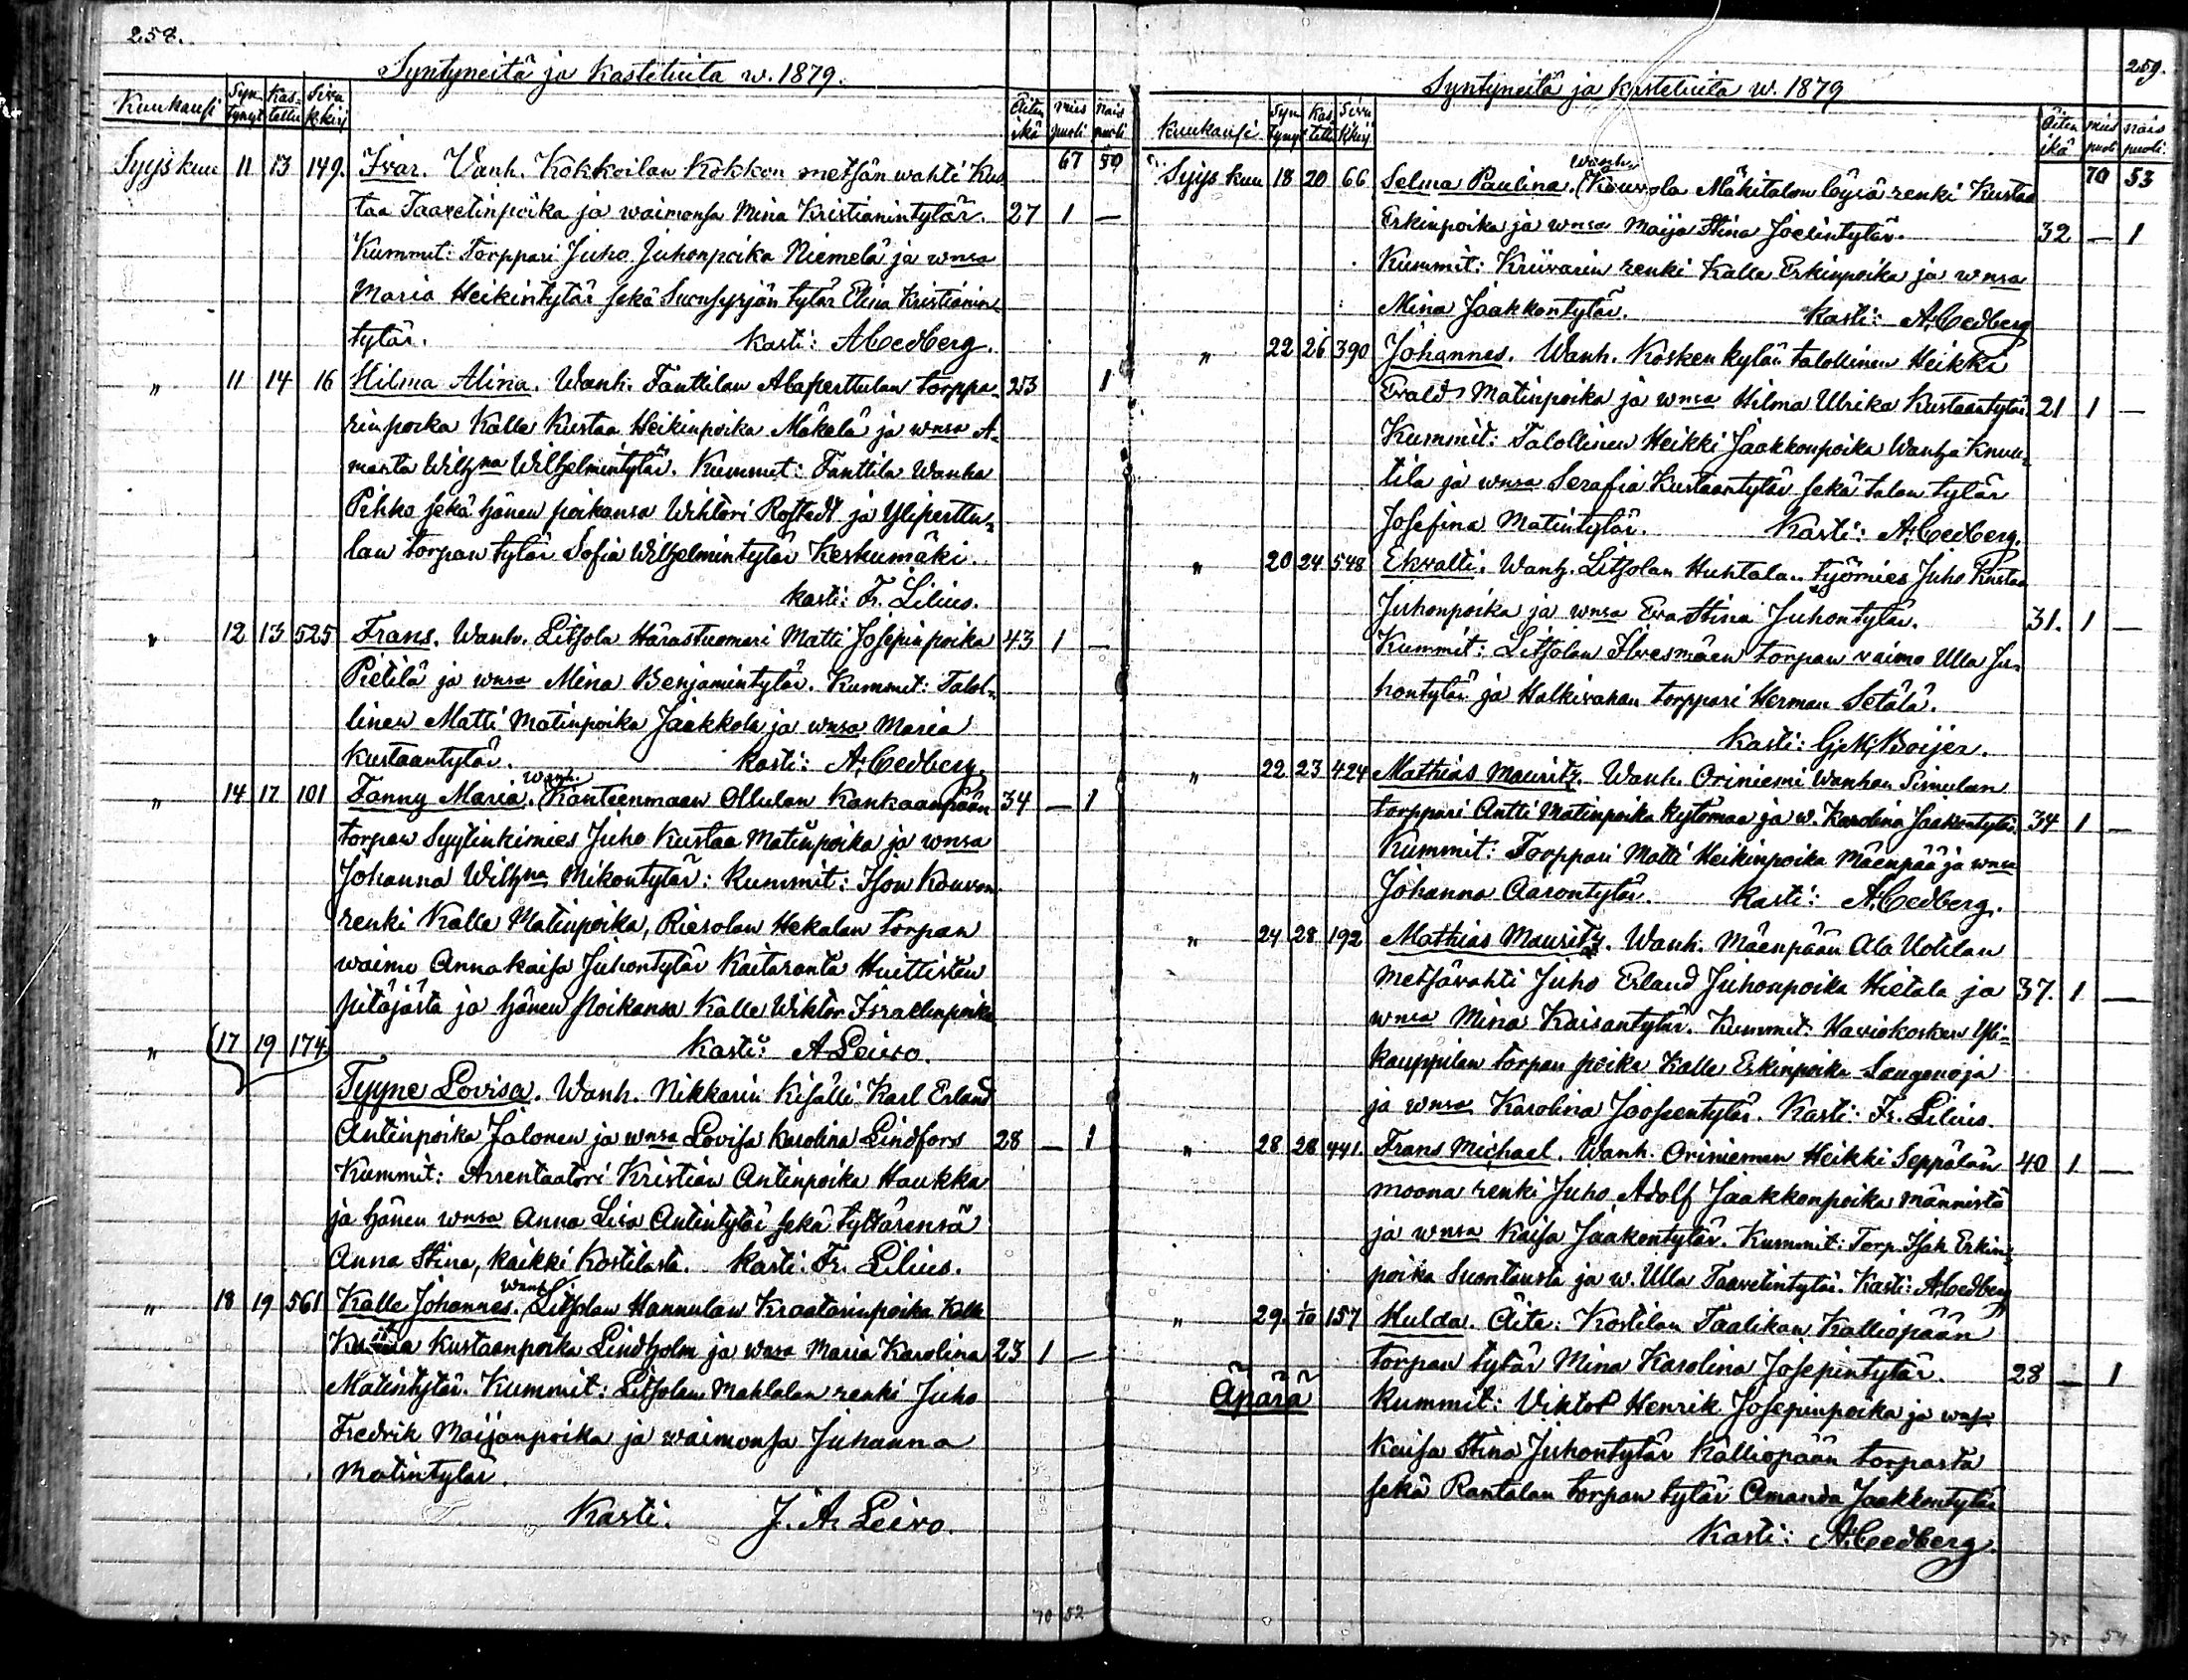 258.
Syntyneitä ja kastetuita w. 1879.
Kuukausi Syn-tynyt Kas-tettu Sivu k. kirj Äiten ikä mies puoli nais puoli
67 50
Syyskuu 11 13 149. Ivar. Vanh. Kokkoilan Kokkon metsän wahti Kus-
taa Taavetinpoika ja waimonsa Mina Kristianintytär. 27 1 —
Kummit: Torppari Juho Juhonpoika Niemelä ja wnsa
Maria Heikintytär sekä Suonsyrjän tytär Elina Kristianin-
tytär. Kasti: A Cedberg.
" 11 14 16 Hilma Alina. Wanh. Tanttilan Alaperttulan torppa- 253 1
rinpoika Kalle Kustaa Heikinpoika Mäkelä ja wnsa A-
manta Wilhna Wilhelmintytär. Kummit: Tanttila Wanha
Pihko sekä hänen poikansa Wihtori Rostedt ja Yliperttu-
lan torpan tytär Sofia Wilhelmintytär Keskumäki.
Kasti: Fr. Lilius.
" 12 13 525 Frans. Wanh. Litsola Härastuomari Matti Josepinpoika 43 1 —
Pietilä ja wnsa Mina Benjamintytär. Kummit: Talol-
linen Matti Matinpoika Jaakkola ja wnsa Maria
Kustaantytär. Kasti: A. Cedberg.
" 14 17 101 Fanny Maria. Wanh. Kanteenmaan Ollulan Kankaanpään 34 — 1
torpan Syytinkimies Juho Kustaa Matinpoika ja wnsa
Johanna Wilhna Mikontytär: Kummit: Ison Kouvon
renki Kalle Matinpoika, Riesolan Hekalan torpan
waimo Annakaisa Juhontytär Kaitaranta Huittisten
pitäjästä ja hänen poikansa Kalle Wiktor Israelinpoika
" 17 19 174 Kasti: A Leivo.
Tyyne Lovisa. Wanh. Nikkarin Kisälli Karl Erland
Antinpoika Jalonen ja wnsa Lovisa Karolina Lindfors 28 — 1
Kummit: Arrentaatori Kristian Antinpoika Haukka
ja hänen wnsa Anna Lisa Antintytär sekä tyttärensä
Anna Stina, kaikki Kostilasta. Kasti: Fr. Lilius.
" 18 19 561 Kalle Johannes. Wanh. Litsolan Hannulan Kraatarinpoika Kalle
Kustaa Kustaanpoika Lindholm ja wnsa Maria Karolina 23 1 —
Matintytär. Kummit: Litsolan Mahlalan renki Juho
Fredrik Maijanpoika ja waimonsa Juhanna
Matintytär.
Kasti. J. A. Leivo.
70 52
259.
Syntyneitä ja kastetuita w. 1879
Kuukausi Syn-tynyt Kas-tettu Sivu k. kirj Äiten ikä mies puoli nais puoli
70 53
Syyskuu 18 20 66 Selma Paulina. Wanh. Kouvola Mäkitalon löysä renki Kustaa
Erkinpoika ja wnsa Maija Stina Joelintytär. 32 — 1
Kummit: Kriivarin renki Kalle Erkinpoika ja wnsa
Mina Jaakkontytär. Kasti: A. Cedberg
" 22 26 390 Johannes. Wanh. Koskenkylän talollinen Heikki
Evald Matinpoika ja wnsa Hilma Ulrika Kustaantytär 21 1 —
Kummit: Talollinen Heikki Jaakkonpoika Wanha Knuu-
tila ja wnsa Serafia Kustaantytär sekä talon tytär
Josefina Matintytär. Kasti: A. Cedberg.
" 20 24 548 Ekvalti. Wanh. Litsolan Huhtalan työmies Juho Kustaa
Juhonpoika ja wnsa Eva Stina Juhontytär. 31. 1 —
Kummit: Litsolan Ilvesmäen torpan vaimo Ulla Ju-
hontytär ja Halkivahan torppari Herman Setälä.
Kasti: G. M. Boijer.
" 22 23 424 Mathias Mauritz. Wanh. Oriniemi Wanhan Simulan
torppari Antti Matinpoika Kytömaa ja w. Karolina Jaakontytär 34 1 —
Kummit: Torppari Matti Heikinpoika Mäenpää ja wnsa
Johanna Aarontytär. Kasti: A. Cedberg.
" 24 28 192 Mathias Mauritz. Wanh. Mäenpään Ala Uotilan
Metsävahti Juho Erland Juhonpoika Hietala ja 37. 1 —
wnsa Mina Kaisantytär. Kummit: Haviokosken Yli-
kauppilan torpan poika Kalle Erkinpoika Saugenoja
ja wnsa Karolina Jooseentytär. Kasti: Fr. Lilius.
" 28 28 441. Frans Michael. Wanh. Orinieman Heikki Seppälän 40 1 —
moona renki Juho Adolf Jaakkonpoika männistö
ja wnsa Kaisa Jaakontytär. Kummit: Torp. Isak Erkin-
poika Suontausta ja w. Ulla Taavetintytär. Kasti: A. Cedberg
" 29. 1/10 157 Hulda. Äite: Kostilan Taalikan Kalliopään
torpan tytär Mina Karolina Josepintytär. 28 — 1
Äpärä Kummit: Viktor Henrik Josepinpoika ja wnsa
Kaisa Stina Juhontytär Kalliopään torpasta
sekä Rantalan torpan tytär Amanda Jaakkontytär
Kasti: A. Cedberg.
75 54